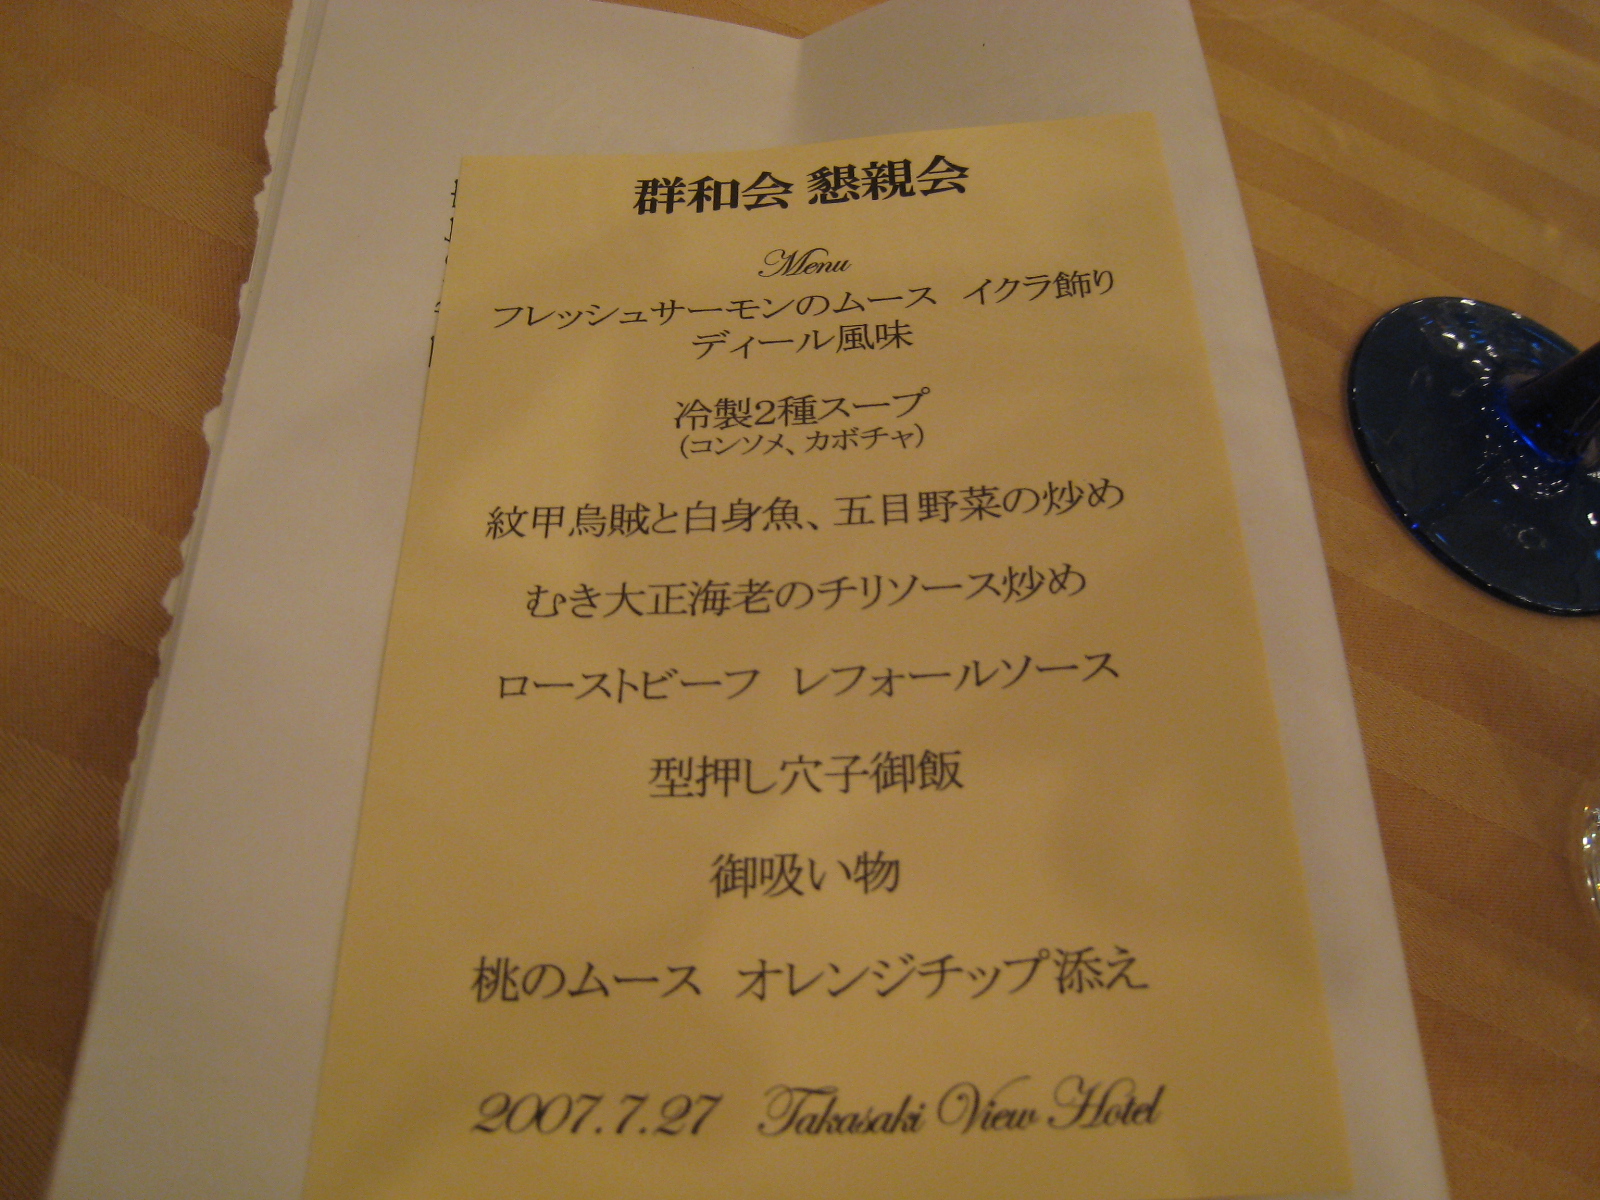 群和会 懇親会
Menu
フレッシュサーモンのムース　イクラ飾り
ディール風味
冷製2種スープ
(コンソメ、カボチャ)
紋甲烏賊と白身魚、五目野菜の炒め
むき大正海老のチリソース炒め
ローストビーフ　レフォールソース
型押し穴子御飯
御吸い物
桃のムース　オレンジチップ添え
2007.7.27　Takasaki View Hotel